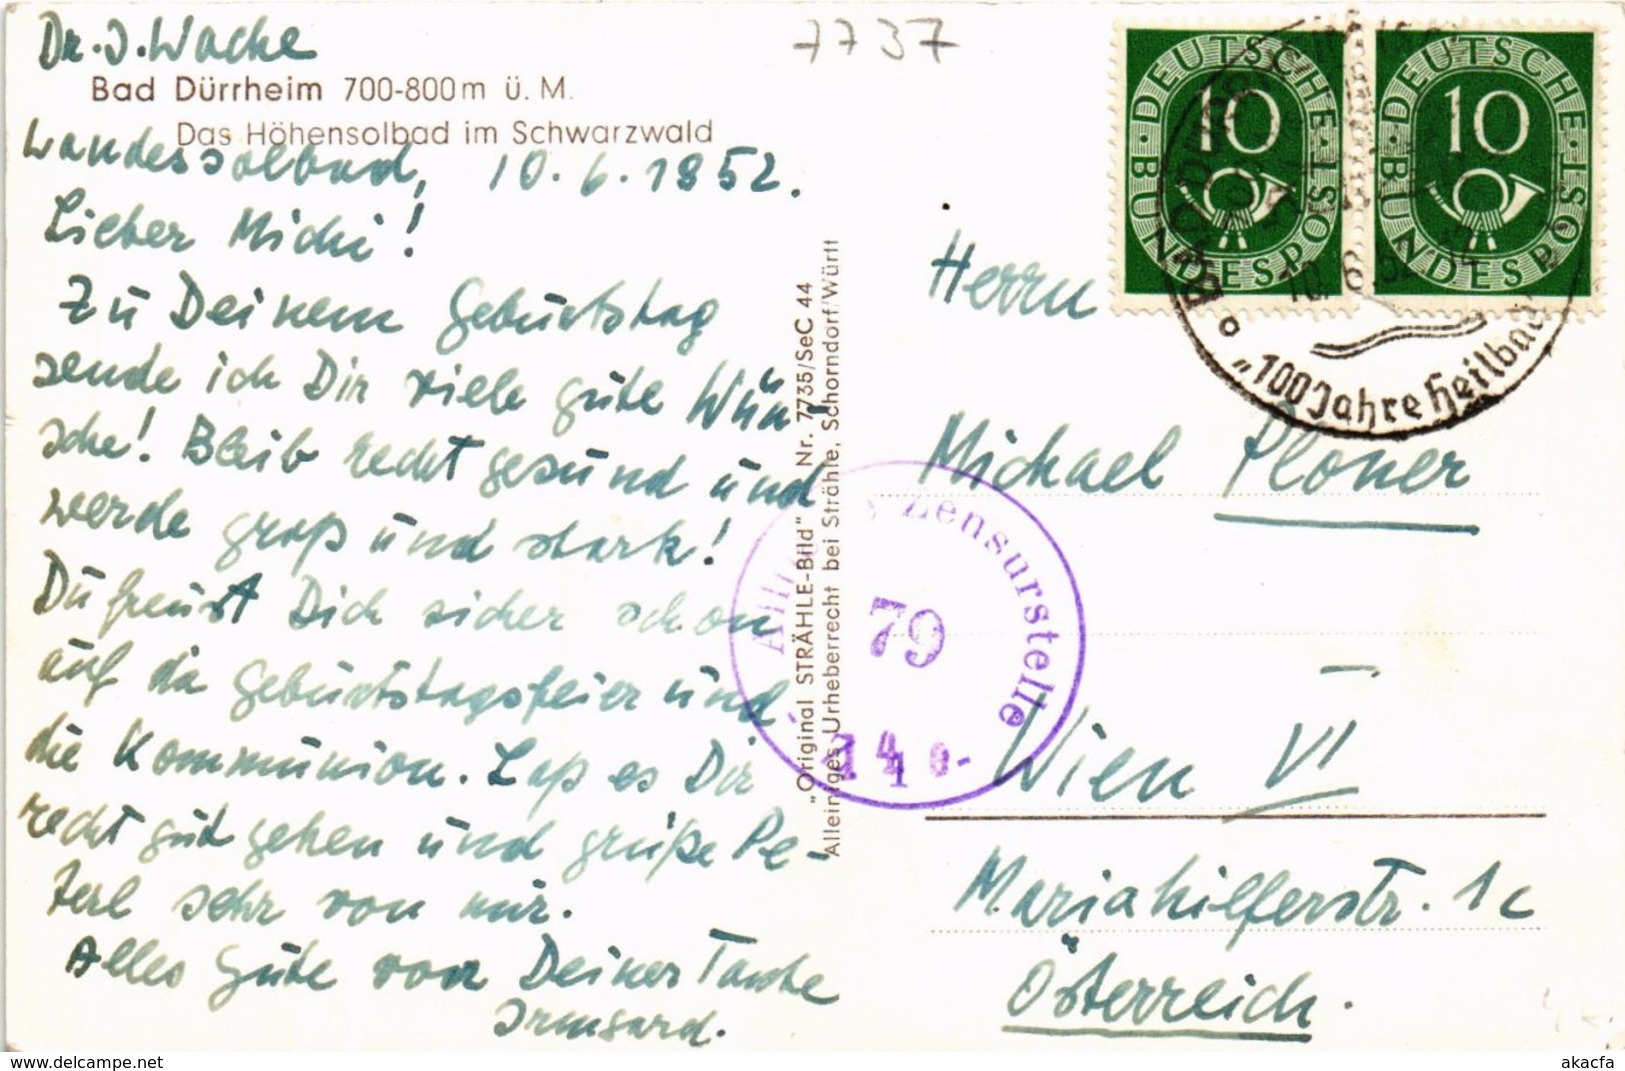 Dr. I. Wacke
Bad Dürrheim 700-800m ü. M.
Das Höhensolbad im Schwarzwald
Landessolbad, 10.6.1952.
Lieber Michi!
Zu Deinem Geburtstag
sende ich Dir viele gute Wün-
sche! Bleib recht gesund und
werde groß und stark!
Du freust Dich sicher schon
auf die Geburtstagsfeier und
die Kommunion. Laß es Dir
recht gut gehen und grüße Pe-
terl sehr von mir.
Alles Gute von Deiner Tante
Irmgard.
7737
"Original STRÄHLE-Bild" Nr. 7735/SeC 44
Alleiniges Urheberrecht bei Strähle, Schorndorf/Württ
DEUTSCHE BUNDESPOST 10
DEUTSCHE BUNDESPOST 10
BAD DÜRRHEIM
10.6.52.14
"100 Jahre Heilbad
Zensurstelle
79
Herrn
Michael Ploner
Wien VI
Mariahilferstr. 1c
Österreich.
akacfa
www.delcampe.net